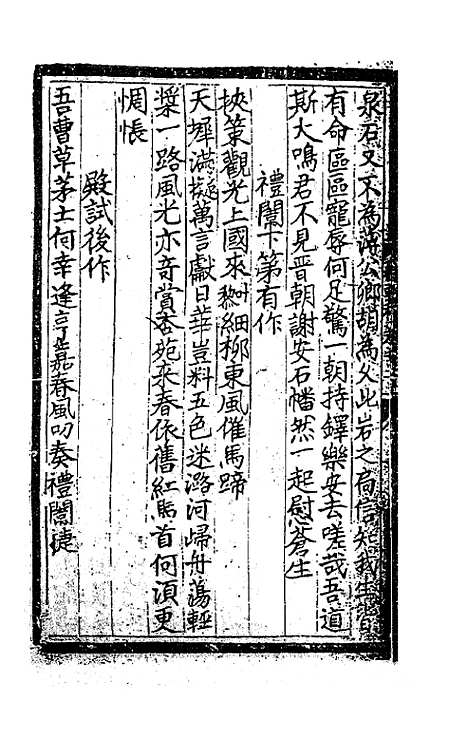 泉石又不為薄公卿胡為久此岩之扃信知我生皆
有命區區寵辱何足驚一朝持鐸樂安去嗟哉吾道
斯大鳴君不見晋朝謝安石幡然一起慰蒼生
禮闈下第有作
挾策觀光上國來黝細柳東風催馬蹄
天墀滿擬萬言獻日華豈料五色迷潞河歸舟蕩輕
槳一路風光亦奇賞杏苑來春依舊紅馬首何須更
惆悵
殿試後作
吾曹草茅士何幸逢亨嘉春風叨奏禮闈捷